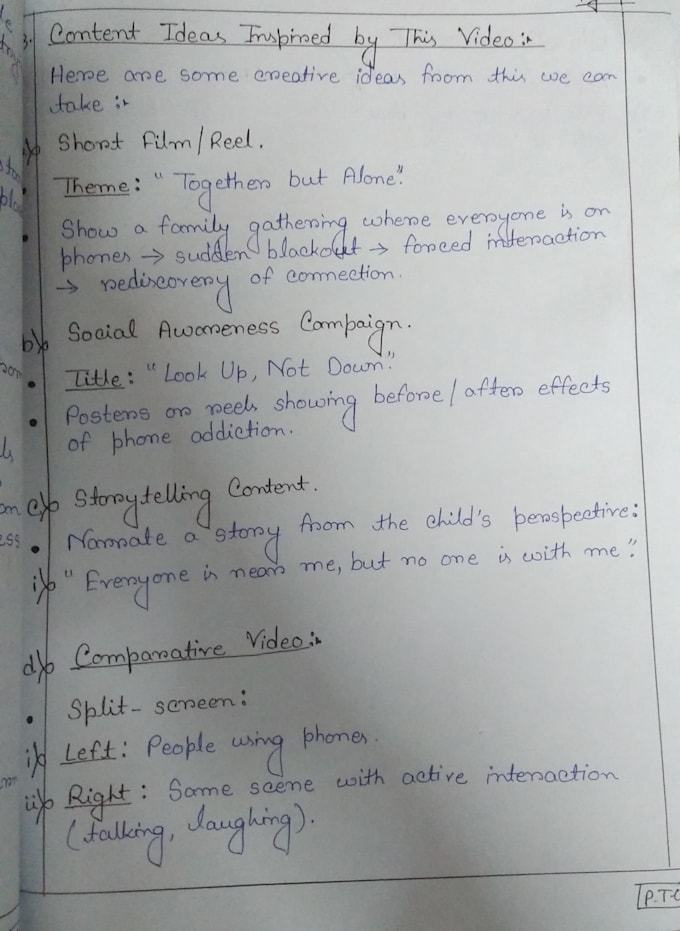 3. Content Ideas Inspired by This Video :-
Here are some creative ideas from this we can
take :-
a) Short Film/Reel.
Theme: "Together but Alone".
• Show a family gathering where everyone is on
phones → sudden blackout → forced interaction
→ rediscovery of connection.
b) Social Awareness Campaign.
• Title: "Look Up, Not Down".
• Posters or reels showing before/after effects
of phone addiction.
c) Storytelling Content.
• Narrate a story from the child's perspective:
i) "Everyone is near me, but no one is with me".
d) Comparative Video :-
• Split-screen:
i) Left: People using phones.
ii) Right: Same scene with active interaction
(talking, laughing).